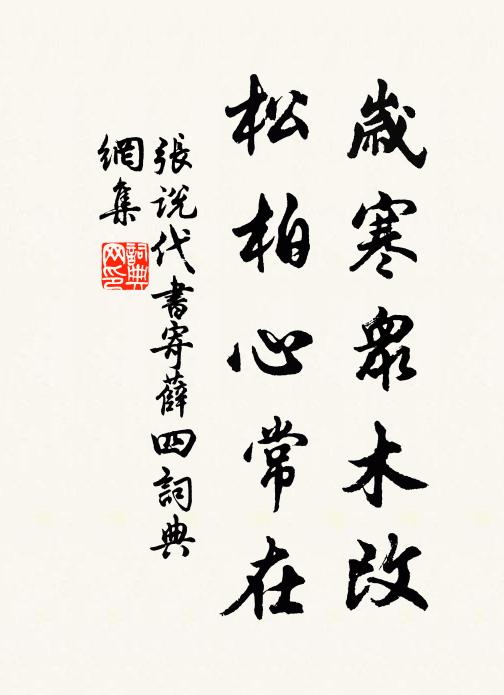 歲寒衆木改
松柏心常在
張說代書寄薛四詞典
網集
詞典
网印